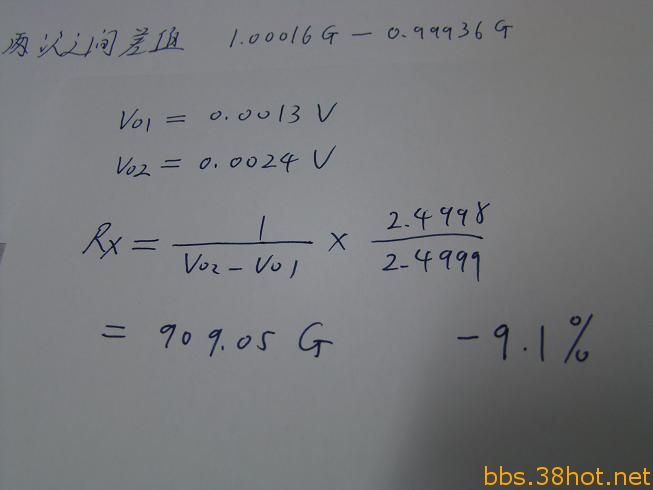 两次之间差值 1.00016G — 0.99936G
V01 = 0.0013 V
V02 = 0.0024 V
Rx = 1 / (V02 - V01) × 2.4998 / 2.4999
= 909.05 G -9.1%
bbs.38hot.net